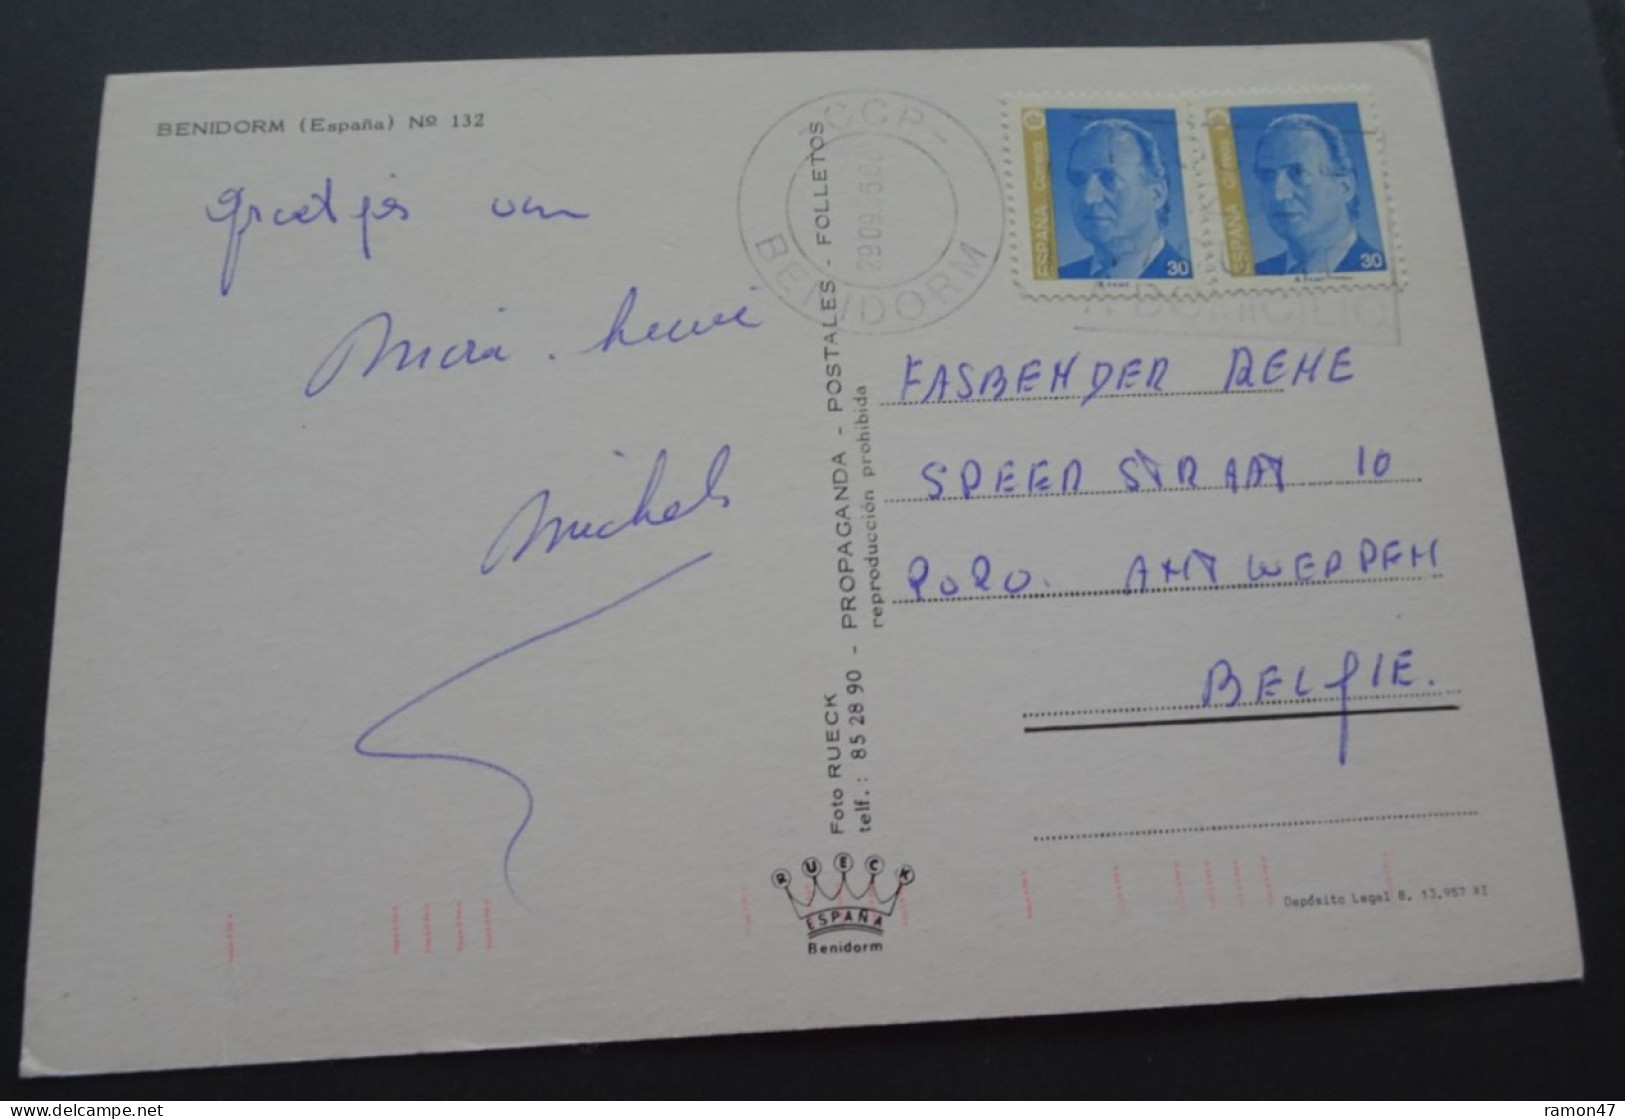 BENIDORM (España) Nº 132
groetjes van
Maria.
Michels
Foto RUECK - PROPAGANDA - POSTALES - FOLLETOS
telf.: 85 28 90
reproducción prohibida
RUECK
ESPAÑA
Benidorm
CCP-
BENIDORM
ESPAÑA Correos
30
ESPAÑA Correos
30
A DOMICILIO
FASBENDER RENE
SPEERSTRAAT 10
2020. ANTWERPEN
BELGIE.
Depósito Legal B. 13.957 XI
ramon47